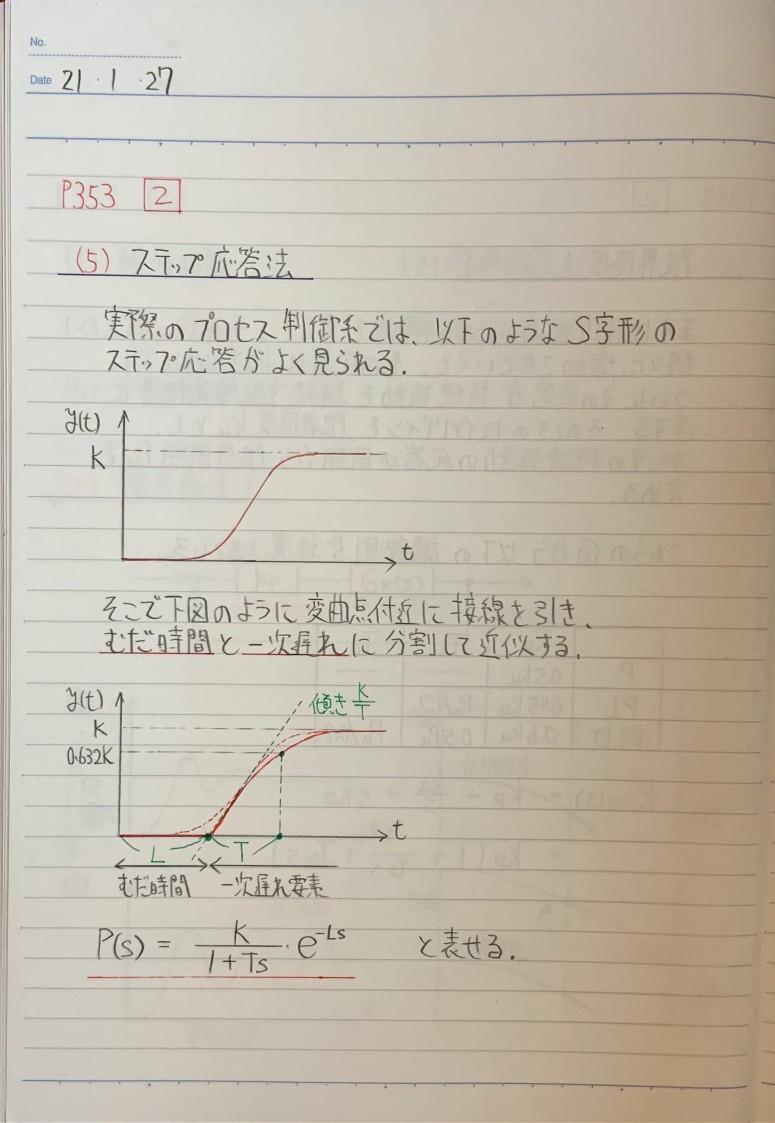 No.
Date 21・1・27
P353 2
(5) ステップ応答法
実際のプロセス制御系では、以下のような S字形の
ステップ応答がよく見られる.
y(t)
K
t
そこで下図のように 変曲点付近に 接線を引き、
むだ時間と一次遅れに 分割して近似する.
y(t)
傾き K/T
K
0.632K
t
L T
むだ時間 一次遅れ要素
P(s) = K/(1+Ts)・e^{-Ls} と表せる.